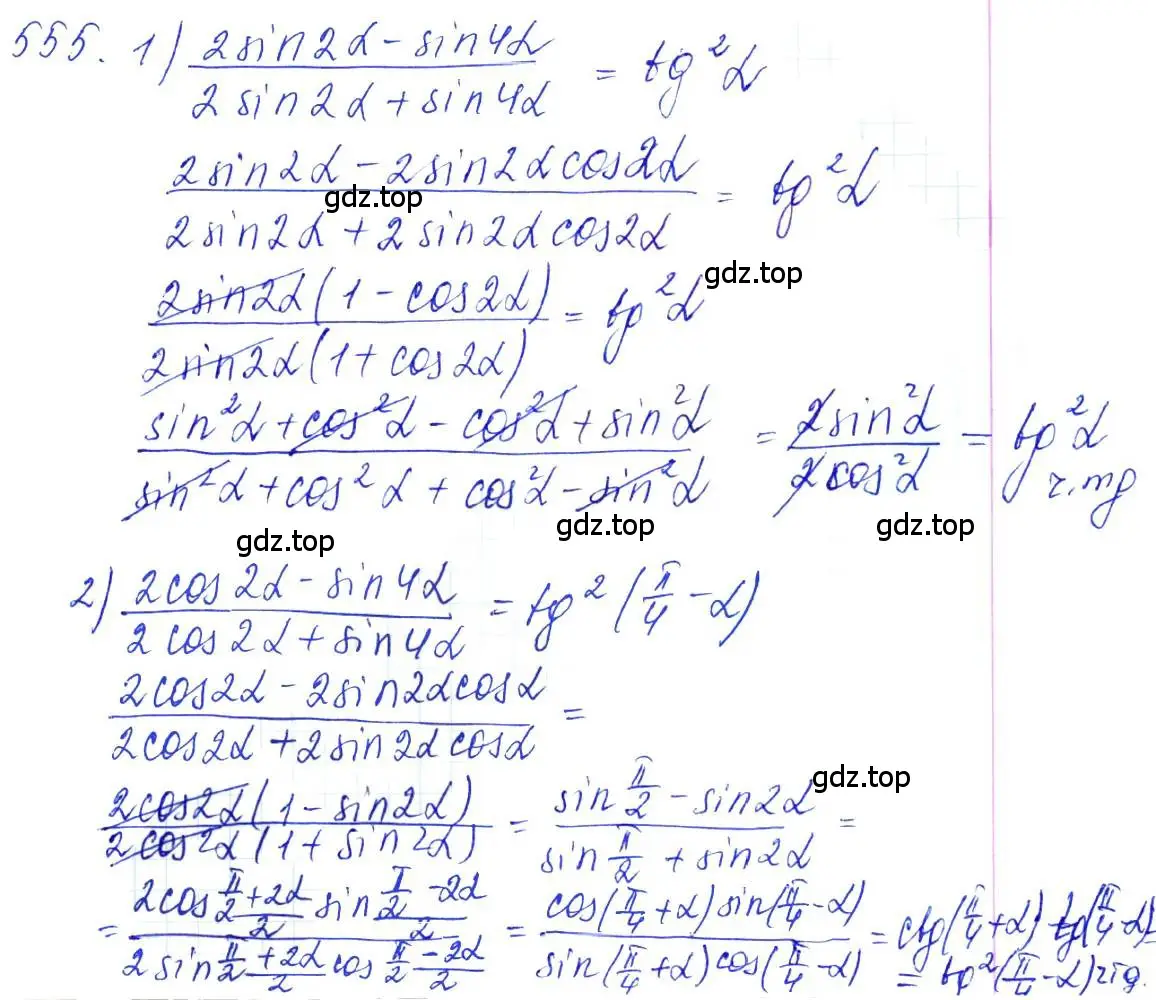 555. 1) (2sin2α - sin4α)/(2sin2α + sin4α) = tg²α
(2sin2α - 2sin2αcos2α)/(2sin2α + 2sin2αcos2α) = tg²α
gdz.top
gdz.top
(2sin2α(1 - cos2α))/(2sin2α(1 + cos2α)) = tg²α
(sin²α + cos²α - cos²α + sin²α)/(sin²α + cos²α + cos²α - sin²α) = (2sin²α)/(2cos²α) = tg²α
gdz.top
gdz.top
gdz.top
2) (2cos2α - sin4α)/(2cos2α + sin4α) = tg²(π/4 - α)
(2cos2α - 2sin2αcosα)/(2cos2α + 2sin2αcosα) =
gdz.top
gdz.top
(2cos2α(1 - sin2α))/(2cos2α(1 + sin2α)) = (sin π/2 - sin2α)/(sin π/2 + sin2α) =
= (2cos (π/2 + 2α)/2 sin (π/2 - 2α)/2)/(2sin (π/2 + 2α)/2 cos (π/2 - 2α)/2) = (cos(π/4 + α) sin(π/4 - α))/(sin(π/4 + α) cos(π/4 - α)) = ctg(π/4 + α) tg(π/4 - α) =
= tg²(π/4 - α)